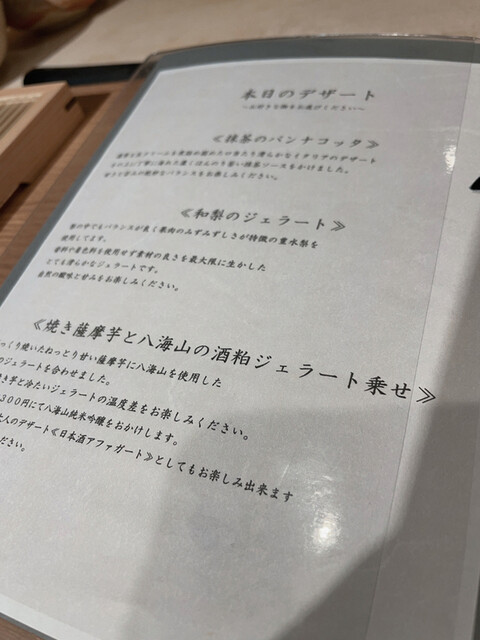 本日のデザート
～お好きな物をお選びください～
≪抹茶のパンナコッタ≫
ソースをかけました。
バランスをお楽しみください。
≪和梨のジェラート≫
梨の中でもバランスが良く果肉のみずみずしさが特徴の豊水梨を
使用してます。
香料や着色料を使用せず素材の良さを最大限に生かした
とても滑らかなジェラートです。
自然の酸味と甘みをお楽しみください。
≪焼き薩摩芋と八海山の酒粕ジェラート乗せ≫
っくり焼いたねっとり甘い薩摩芋に八海山を使用した
のジェラートを合わせました。
き芋と冷たいジェラートの温度差をお楽しみください。
300円にて八海山純米吟醸をおかけします。
大人のデザート≪日本酒アファガート≫としてもお楽しみ出来ます
ださい。